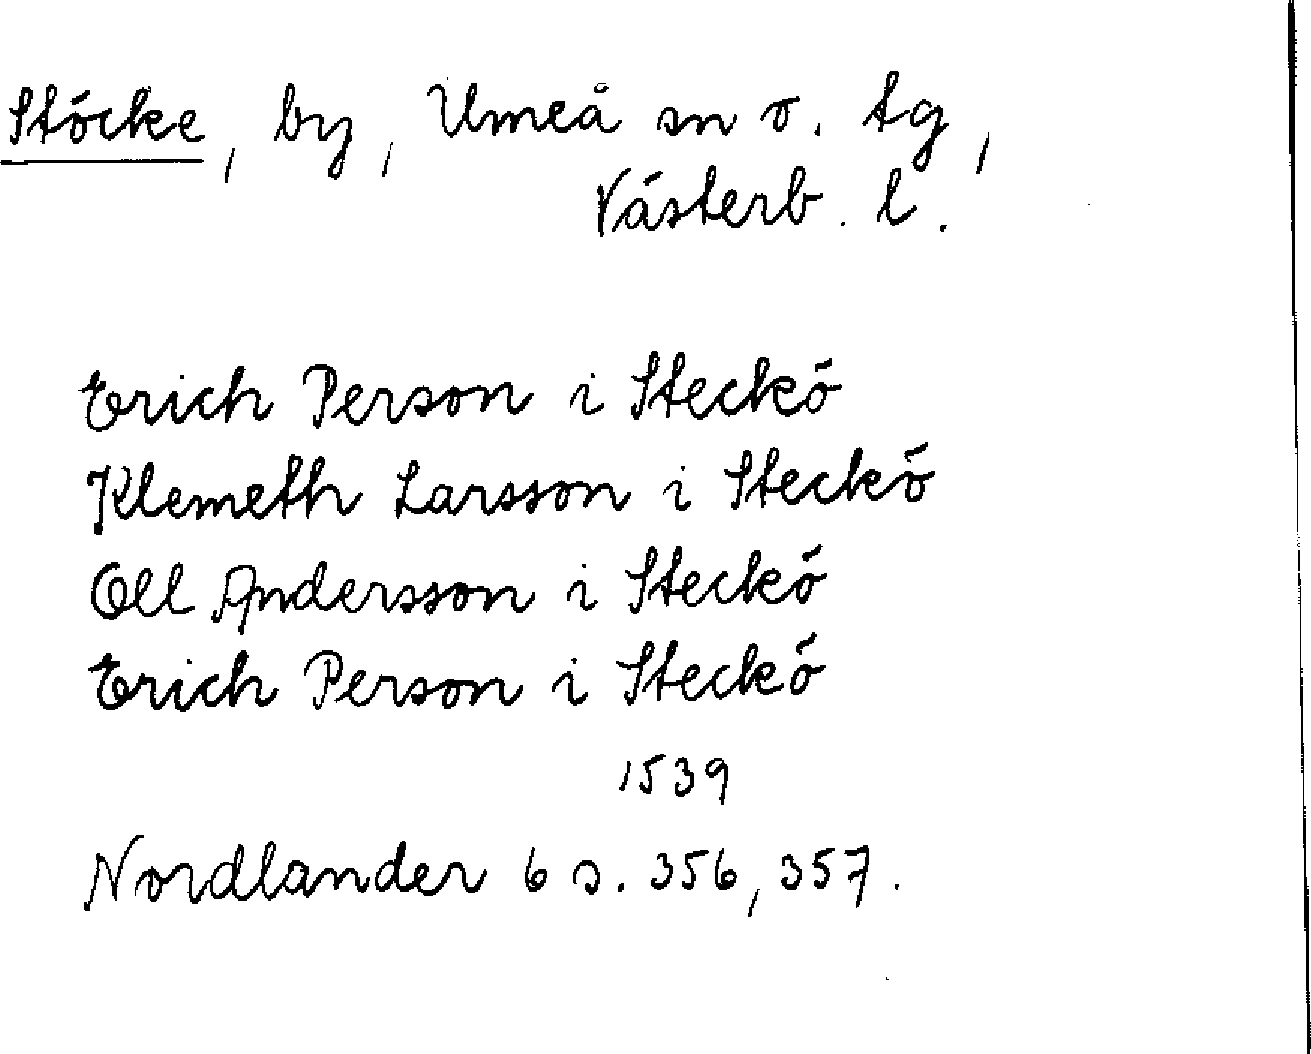 Stöcke, by, Umeå sn o. tg,
Västerb. l.
Erich Person i Steckö
Klemeth Larsson i Steckö
Oll Andersson i Steckö
Erich Person i Steckö
1539
Nordlander 6 s. 356, 357.